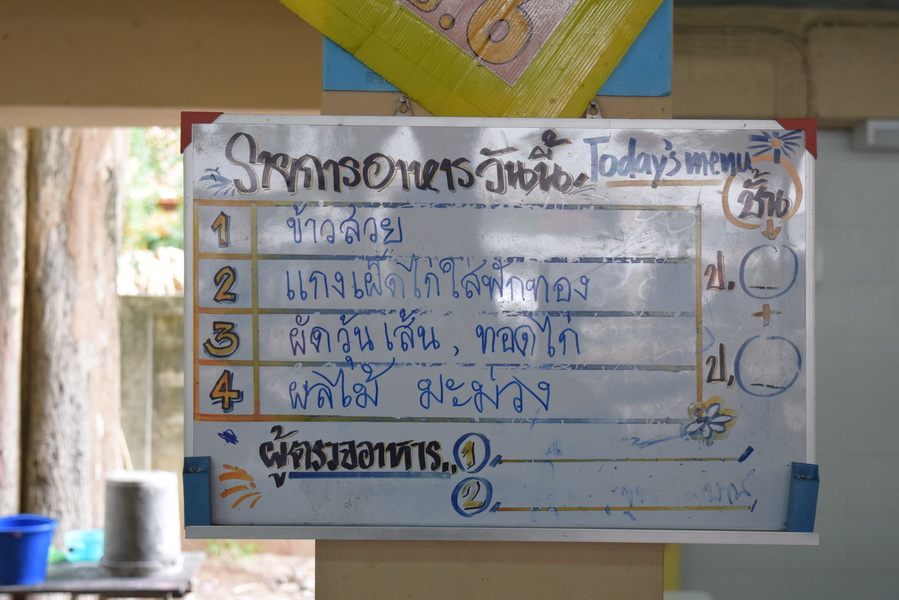 .6
รายการอาหารวันนี้ Today's menu
ชั้น
1 ข้าวสวย
2 แกงเผ็ดไก่ใส่ฟักทอง
ป.
+
3 ผัดวุ้นเส้น, ทอดไก่
ป.
4 ผลไม้ มะม่วง
ผู้ตรวจอาหาร.. 1
2